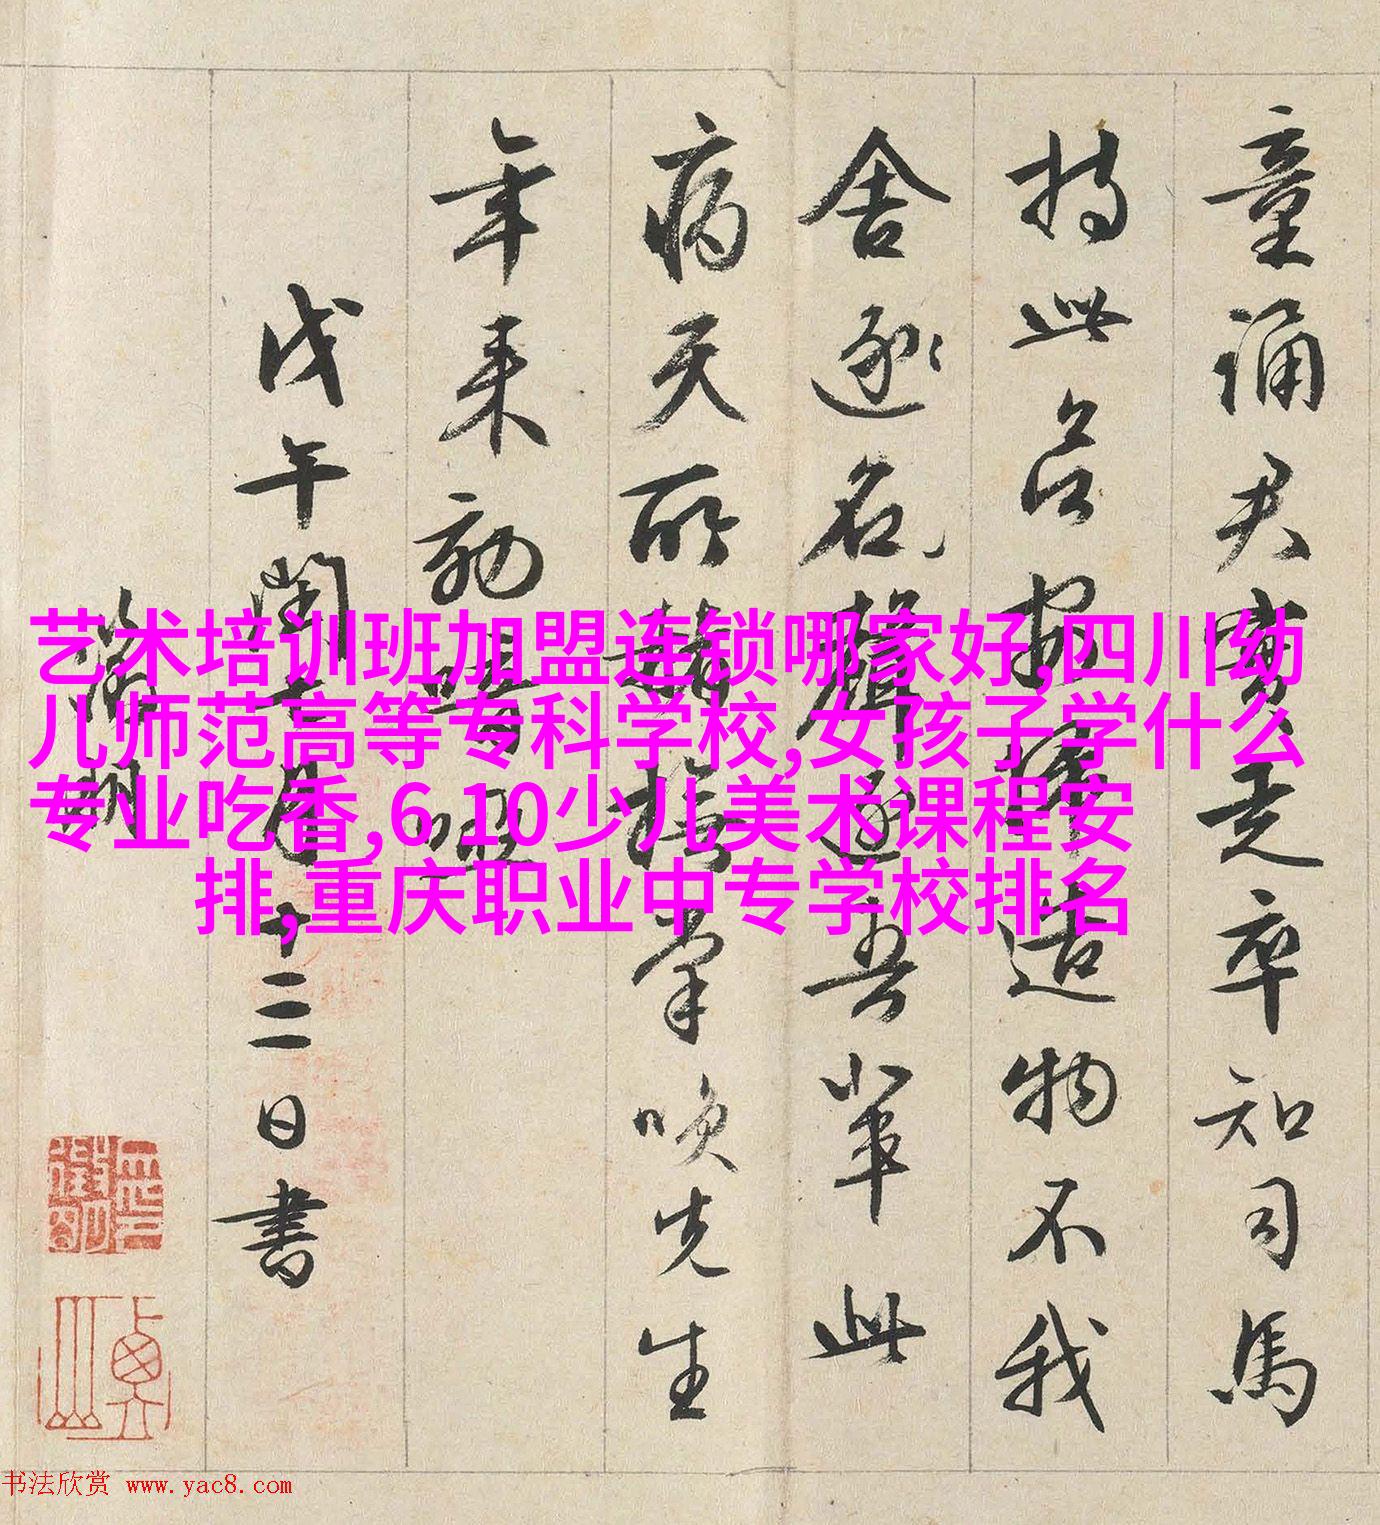 童诵君實走卒知司馬
持此

造物不我
舍逐名聲逐吾輩此
病天所赭撫掌唉先生
年来効喑啞
戊午閏十月十二日書
艺术培训班加盟连锁哪家好,四川幼
儿师范高等专科学校,女孩子学什么
专业吃香,6 10少儿美术课程安
排,重庆职业中专学校排名
书法欣赏 www.yac8.com